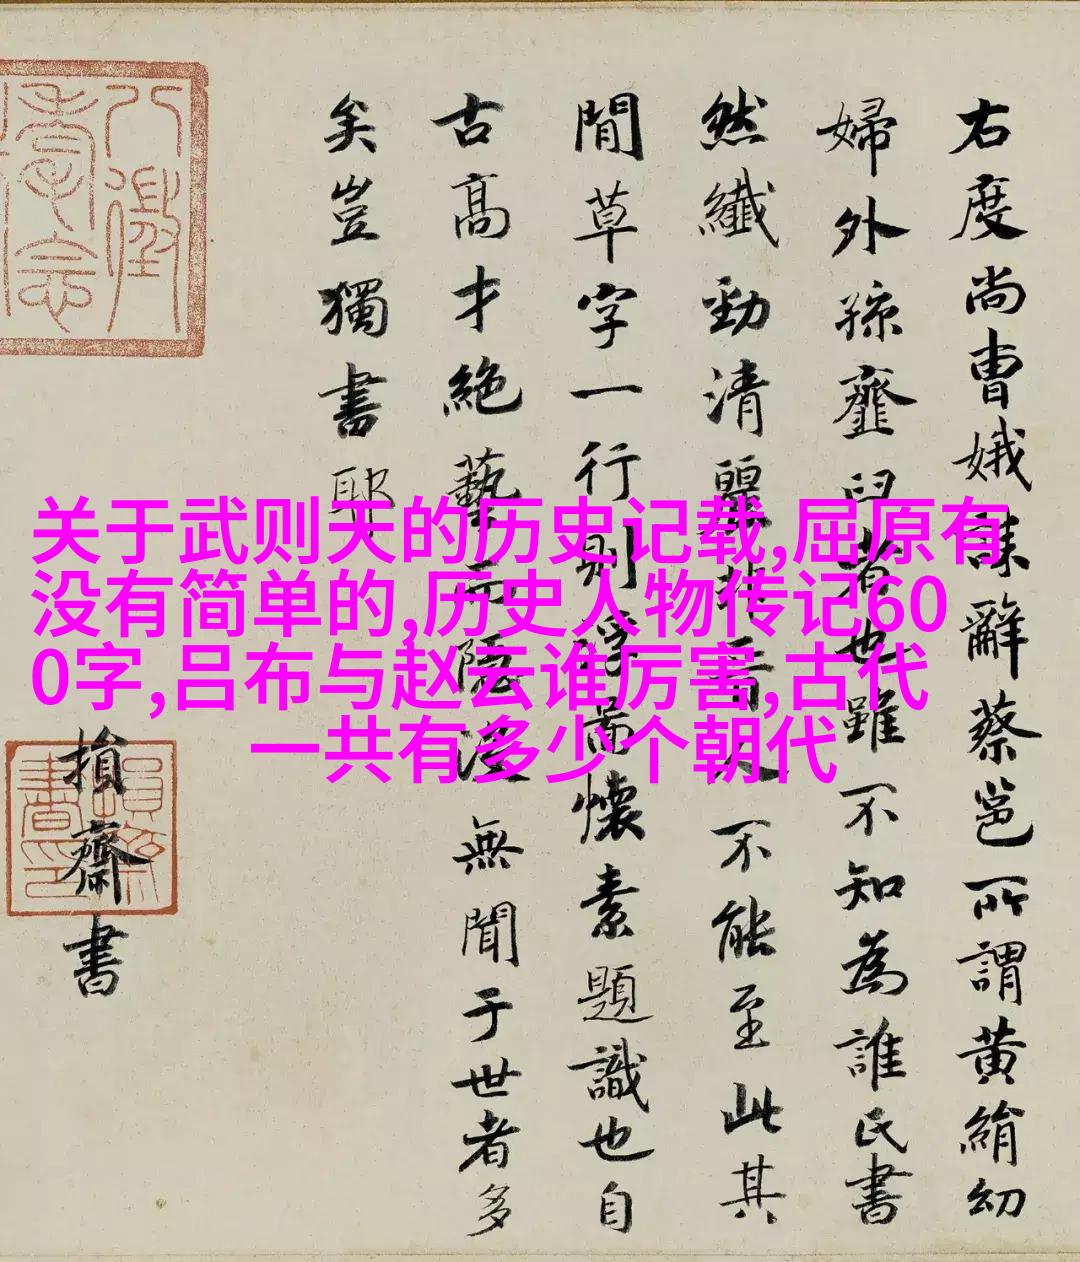 右度尚曹娥誄辭蔡邕所謂黄絹幼
婦外孫虀臼者也雖不知為誰氏書
然纖勁清麗非晋人不能至此其
間草字一行則浮圖懷素題識也自
古高才絶藝而隠没無聞于世者多
矣豈獨書耶
損齋書
关于武则天的历史记载,屈原有
没有简单的,历史人物传记60
0字,吕布与赵云谁厉害,古代
一共有多少个朝代